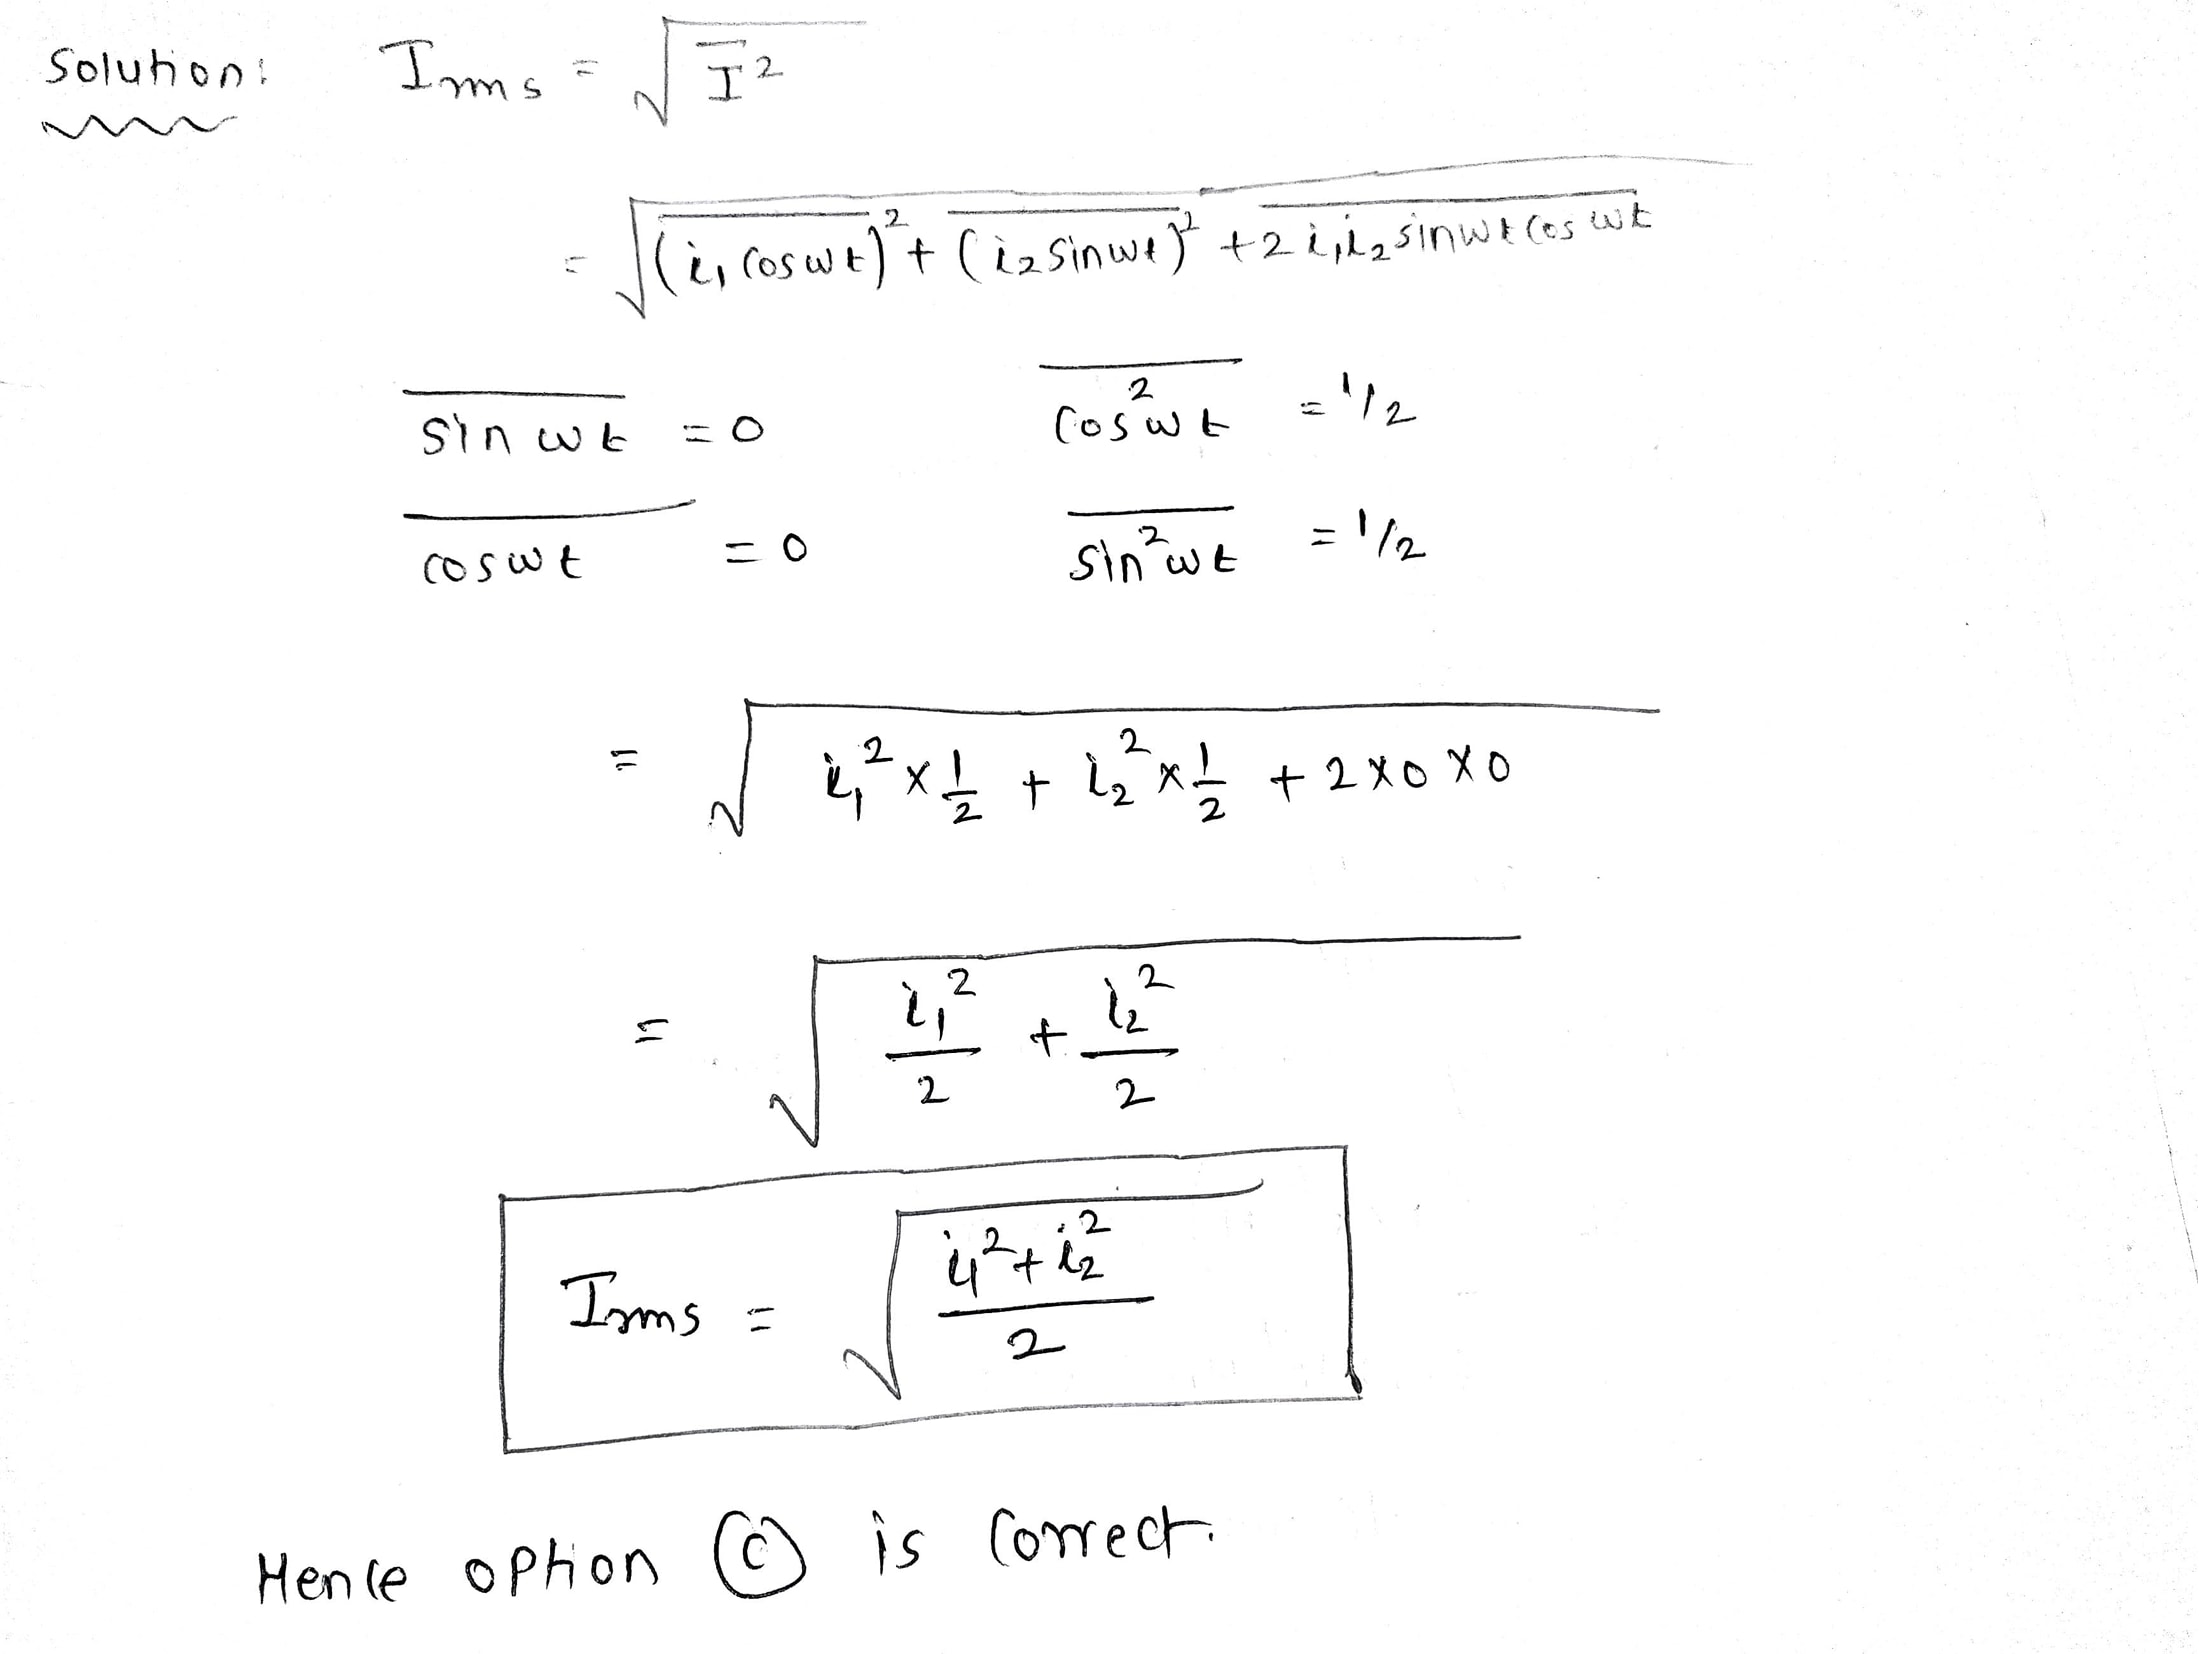 Solution: Irms = √(I̅²)
= √( \overline{(i₁ cos wt)}² + \overline{(i₂ sin wt)}² + 2 \overline{i₁i₂ sin wt cos wt} )
\overline{sin wt} = 0 \overline{cos² wt} = 1/2
\overline{cos wt} = 0 \overline{sin² wt} = 1/2
= √( i₁² × 1/2 + i₂² × 1/2 + 2 × 0 × 0 )
= √( i₁²/2 + i₂²/2 )
Irms = √( (i₁² + i₂²)/2 )
Hence option (c) is correct.